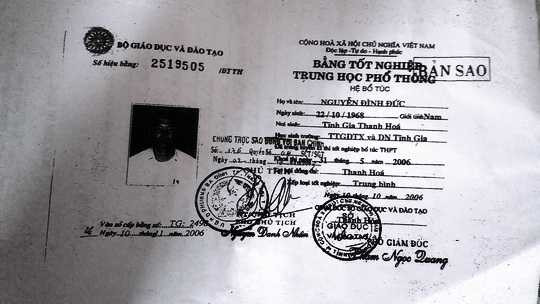 BỘ GIÁO DỤC VÀ ĐÀO TẠO
Số hiệu bằng: 2519505 /BTTH
CỘNG HOÀ XÃ HỘI CHỦ NGHĨA VIỆT NAM
Độc lập - Tự do - Hạnh phúc
BẰNG TỐT NGHIỆP
TRUNG HỌC PHỔ THÔNG
BẢN SAO
HỆ BỔ TÚC
Họ và tên: NGUYỄN ĐÌNH ĐỨC
Ngày sinh: 22/10/1968 Giới tính: Nam
Nơi sinh: Tĩnh Gia Thanh Hoá
Học sinh trường: TTGDTX và DN Tĩnh Gia
thi tốt nghiệp bổ túc THPT
Khoá thi ngày 31 tháng 5 năm 2006
Tại hội đồng thi: Thanh Hoá
Xếp loại tốt nghiệp: Trung bình
10 tháng 10 năm 2006
SỞ GIÁO DỤC VÀ ĐÀO TẠO
Thanh Hoá
PHÓ GIÁM ĐỐC
Phạm Ngọc Quang
CHỨNG THỰC SAO ĐÚNG VỚI BẢN CHÍNH
SCT/SGT
PHÓ CHỦ TỊCH
Nguyễn Danh Nhân
SỞ
GIÁO DỤC
VÀ ĐÀO TẠO
Vào sổ cấp bằng số: TG:
Ngày 10 tháng 11 năm 2006